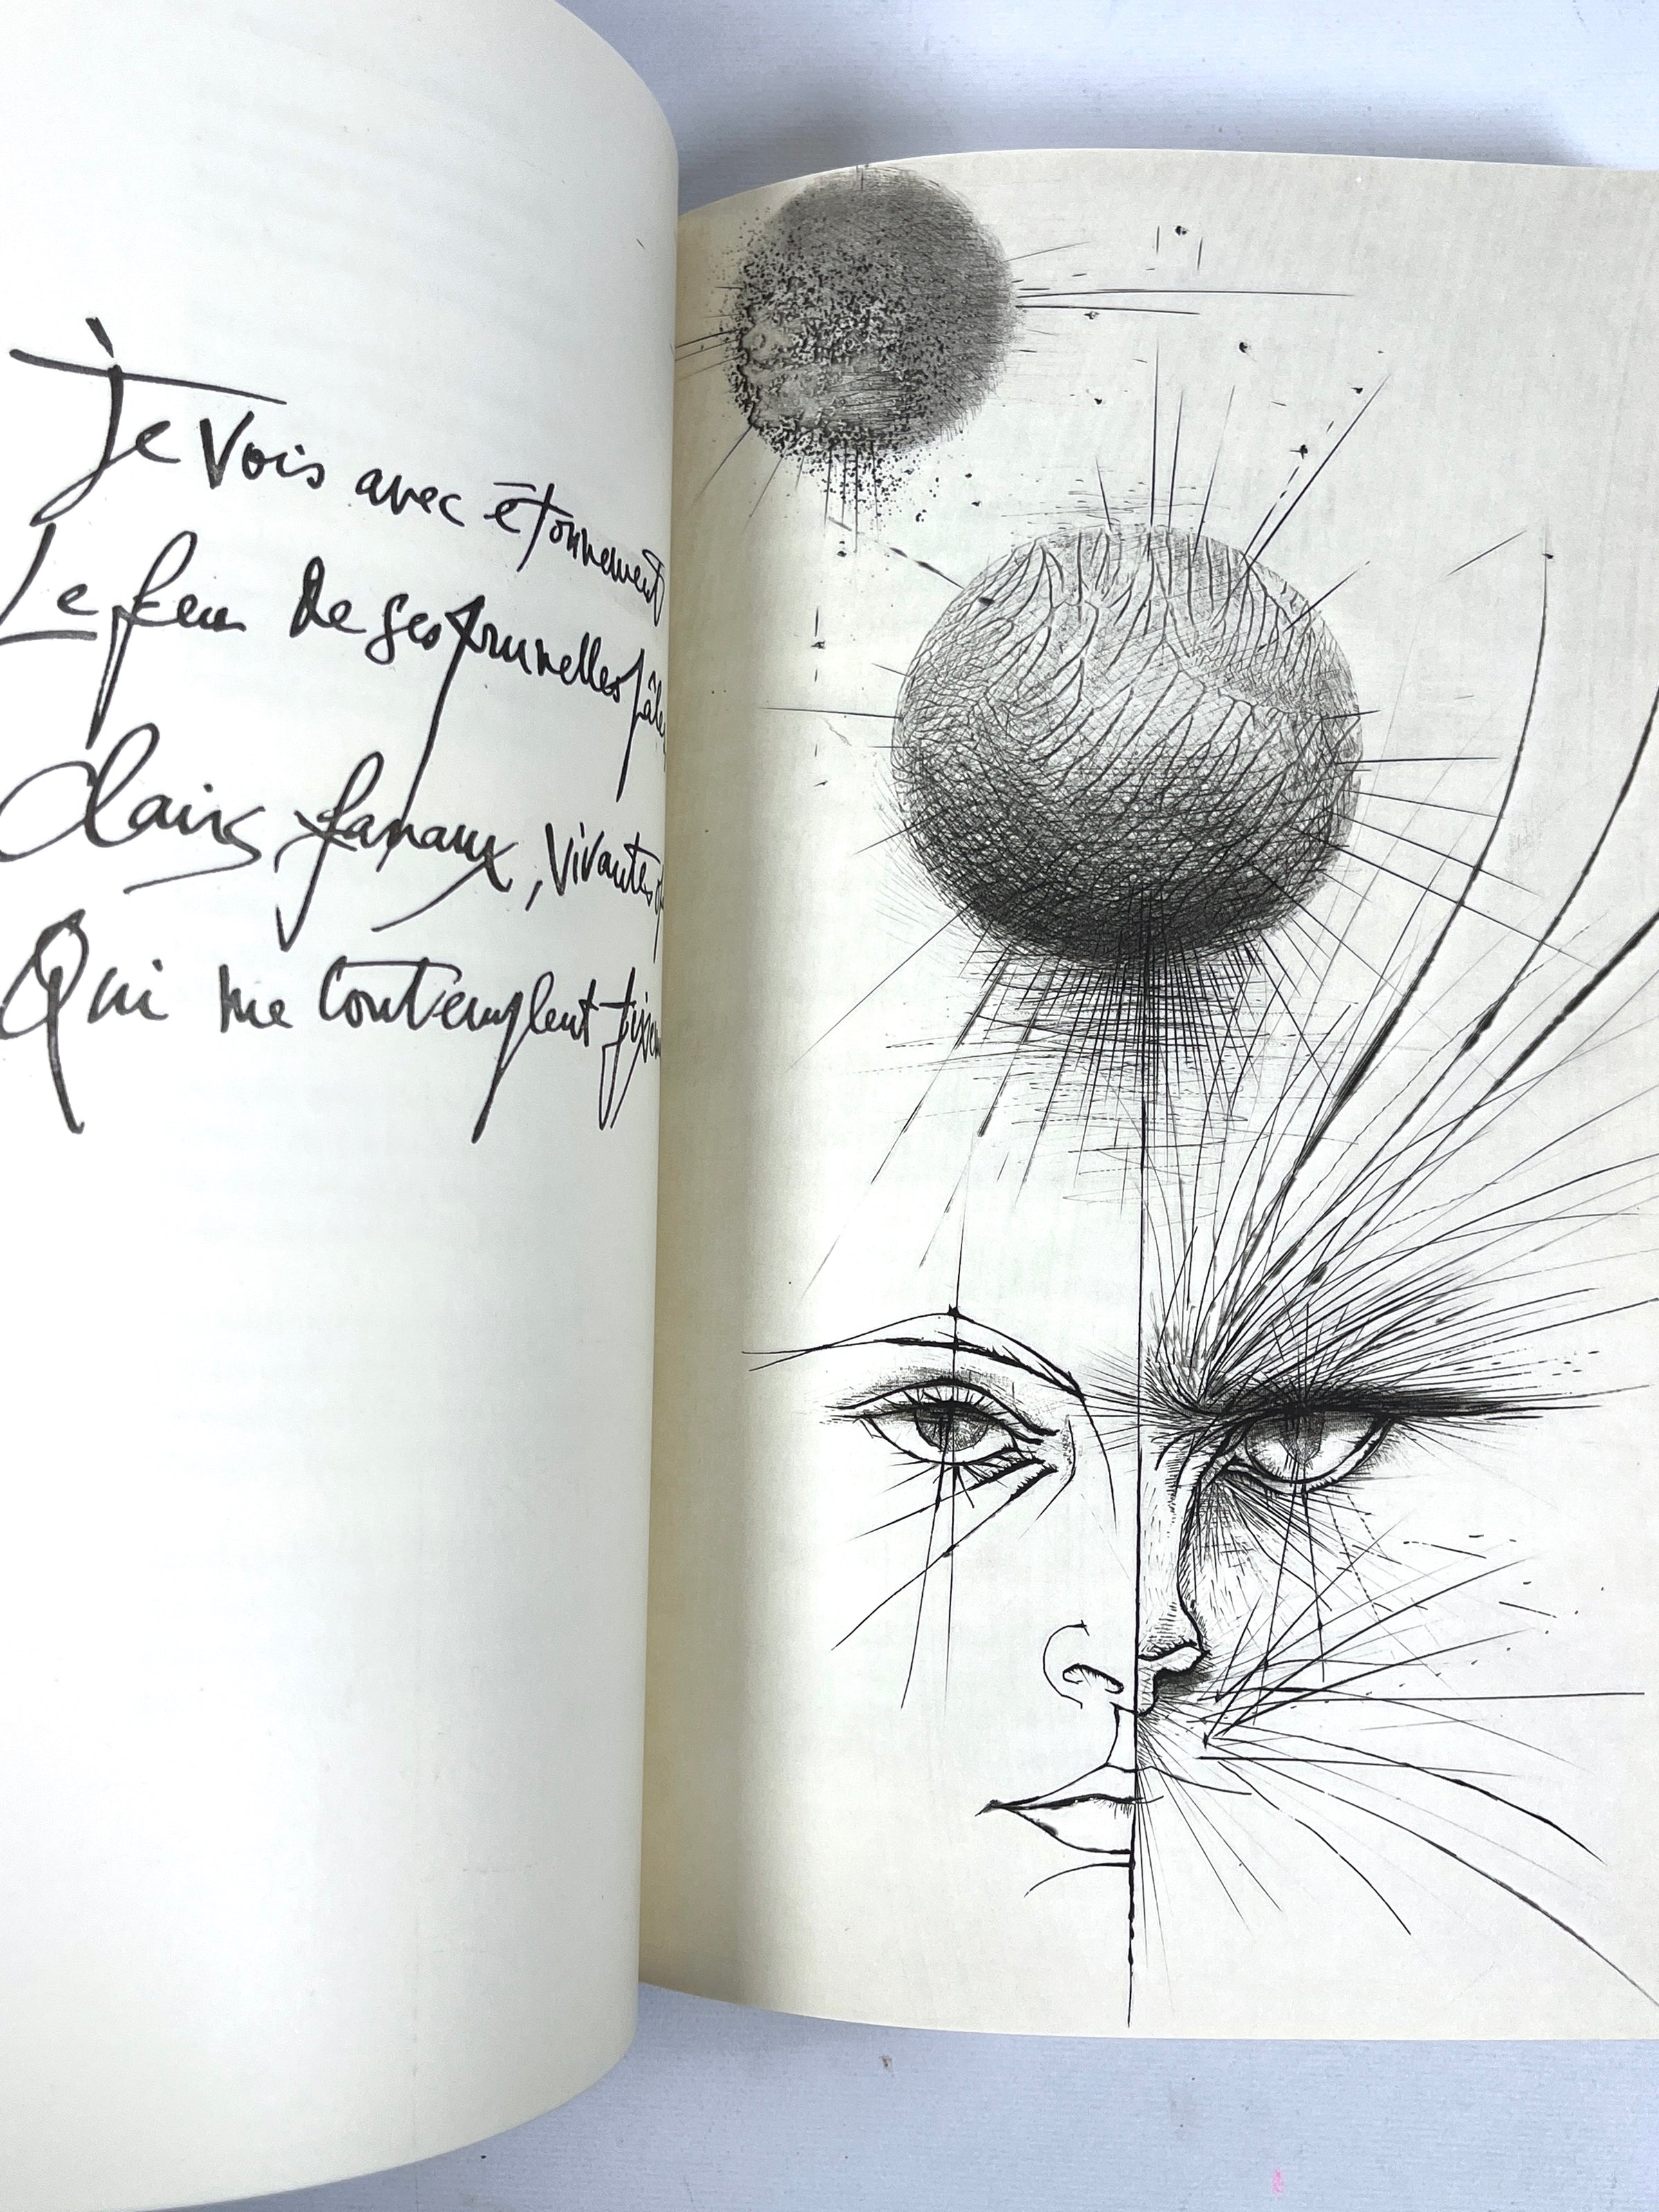 Je Vois avec étonnement
Le feu de ses prunelles pâles
Clairs fanaux, vivantes
Qui me contemplent